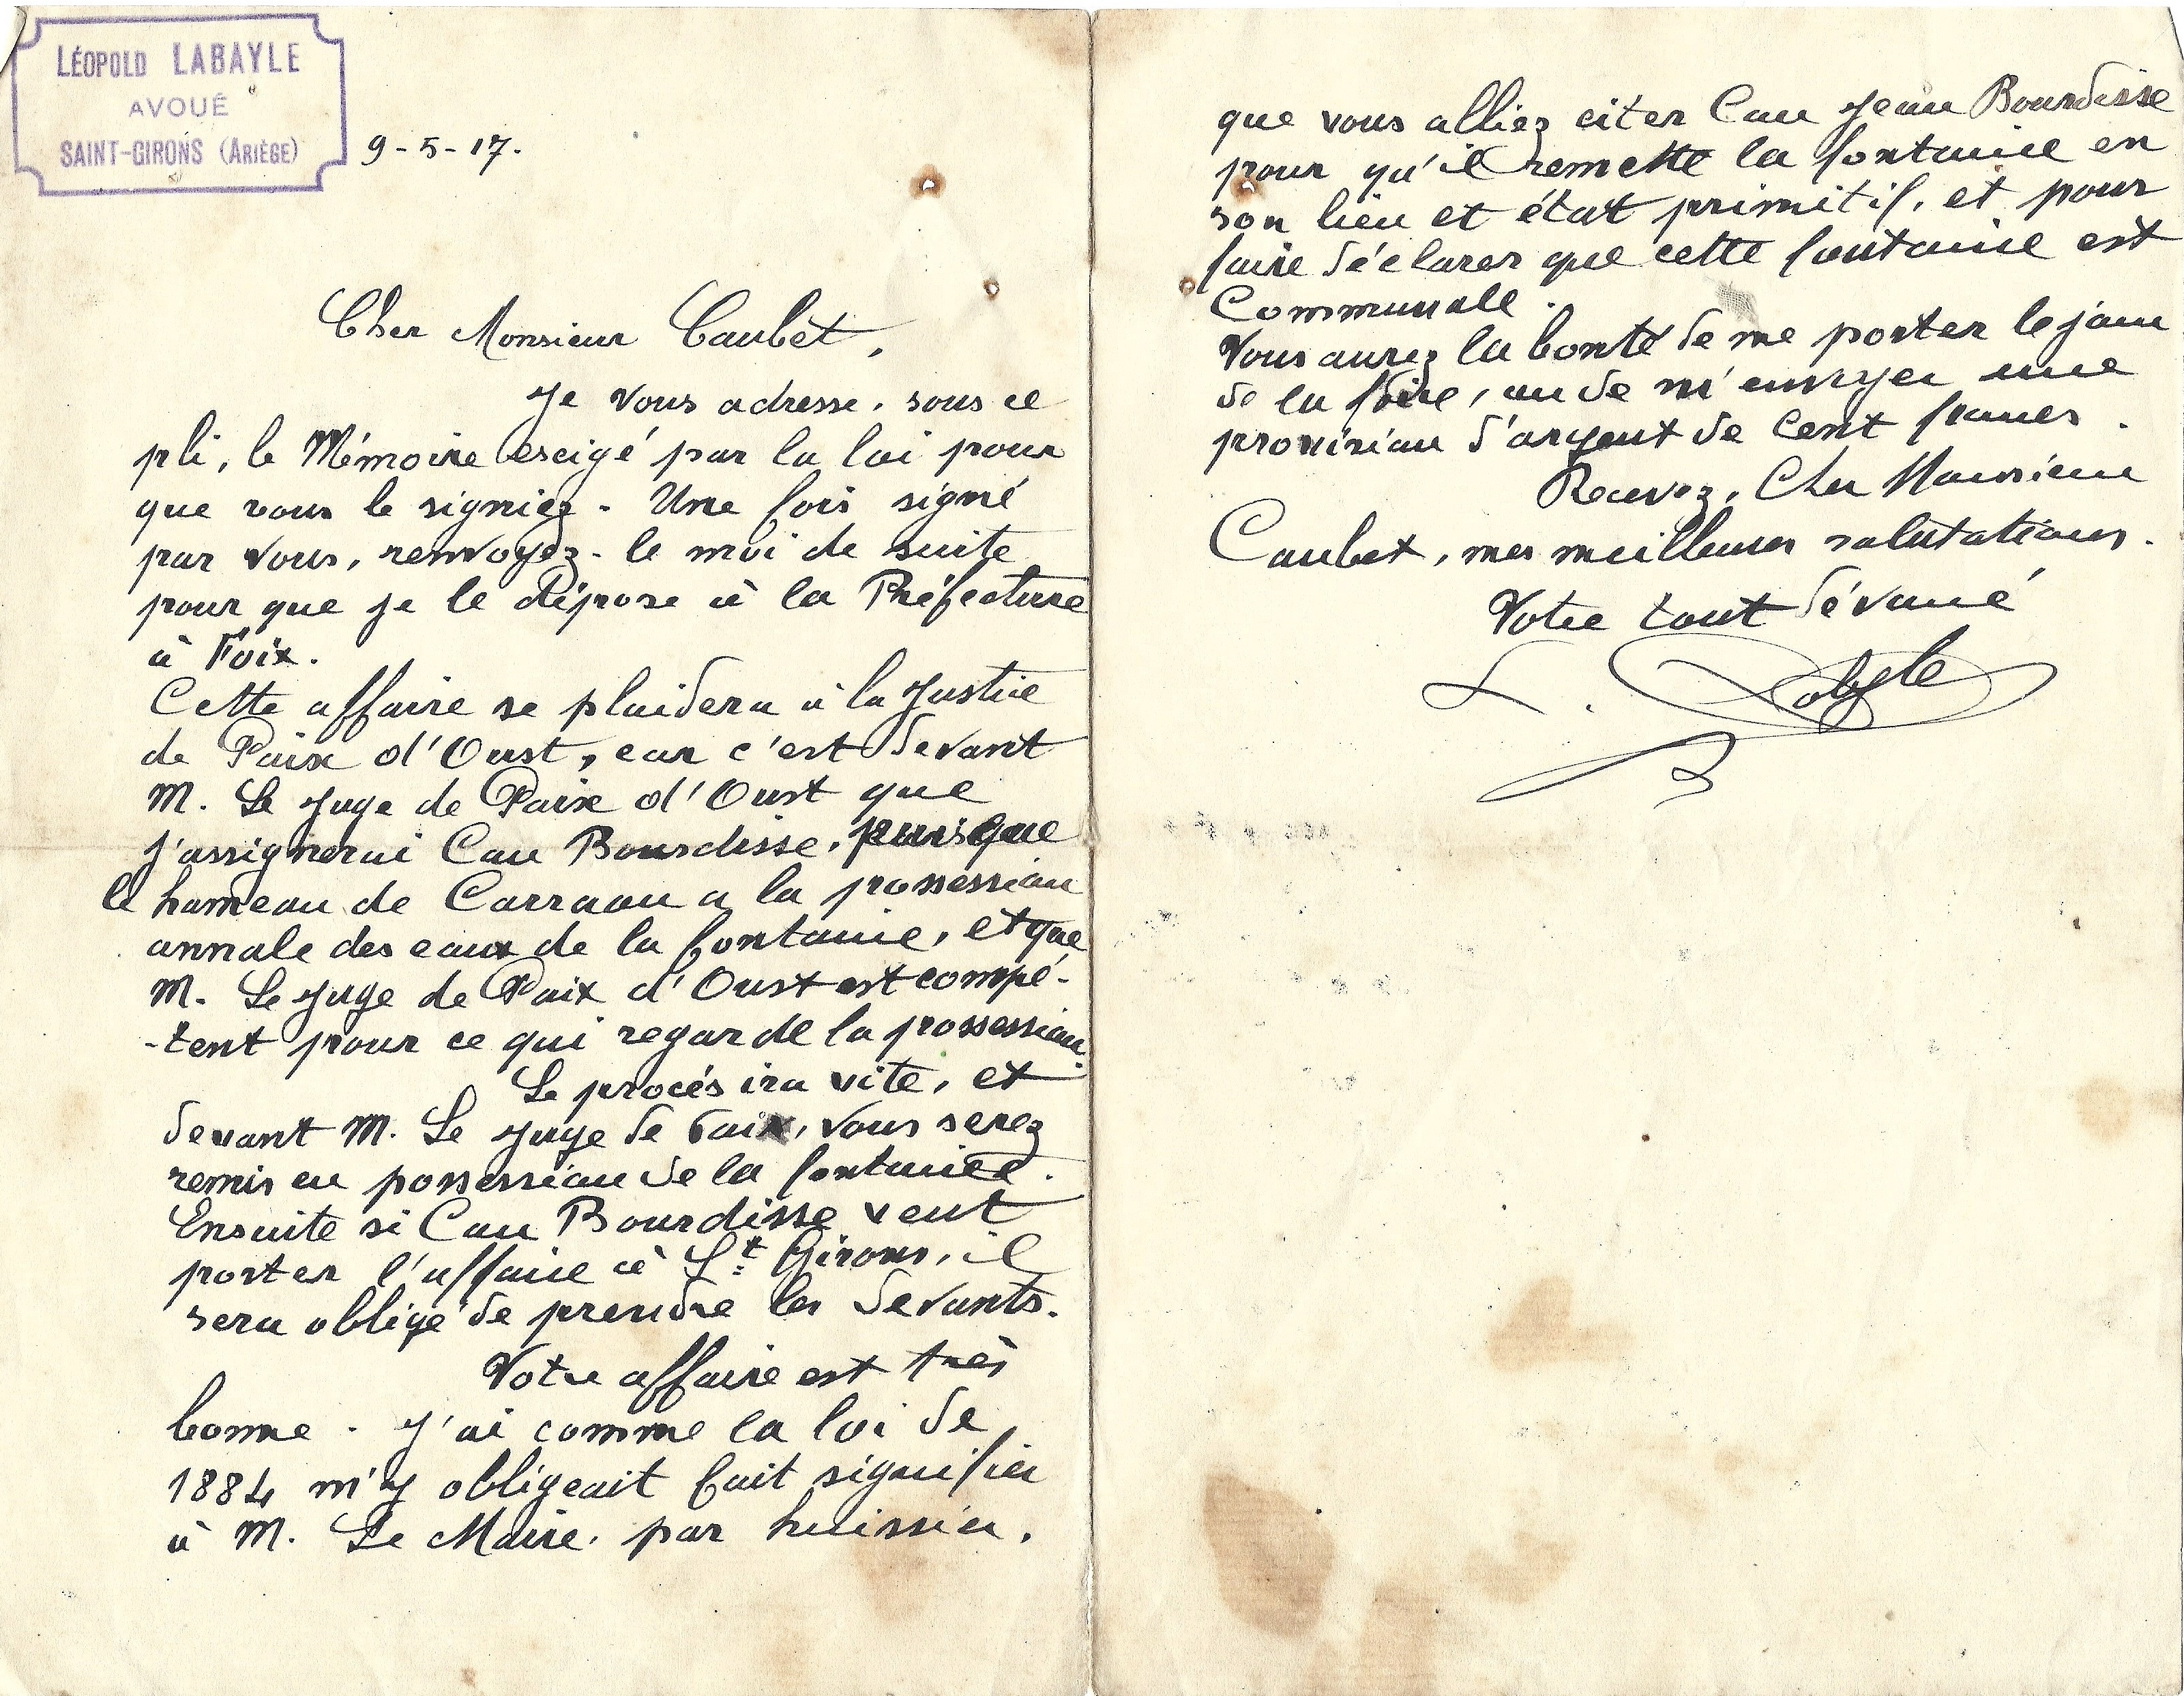 LÉOPOLD LABAYLE
AVOUÉ
SAINT-GIRONS (ARIÈGE)
9-5-17.
Cher Monsieur Caubet,
Je vous adresse, sous ce
pli, le Mémoire exigé par la loi pour
que vous le signiez. Une fois signé
par vous, renvoyez-le moi de suite
pour que je le dépose à la Préfecture
à Foix.
Cette affaire se plaidera à la Justice
de Paix d'Oust, car c'est devant
M. Le Juge de Paix d'Oust que
j'assignerai Cau Bourdisse, puisque
le hameau de Carraou a la possession
annale des eaux de la fontaine, et que
M. Le Juge de Paix d'Oust est compé-
-tent pour ce qui regarde la possession.
Le procés ira vite, et
devant M. Le Juge de Paix, vous serez
remis en possession de la fontaine.
Ensuite si Cau Bourdisse veut
porter l'affaire à St Girons, il
sera obligé de prendre les devants.
Votre affaire est très
bonne. J'ai comme la loi de
1884 m'y obligeait fait signifier
à M. Le Maire, par huissier,
que vous alliez citer Cau Jean Bourdisse
pour qu'il remette la fontaine en
son lieu et état primitif, et pour
faire déclarer que cette fontaine est
Communale.
Vous aurez la bonté de me porter le jour
de la foire, ou de m'envoyer une
provision d'argent de Cent francs.
Recevez, Cher Monsieur
Caubet, mes meilleures salutations.
Votre tout dévoué
L. Labayle